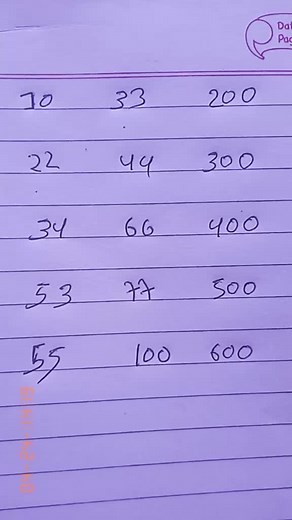 Dat
Pag
10 33 200
22 44 300
34 66 400
53 77 500
55 100 600